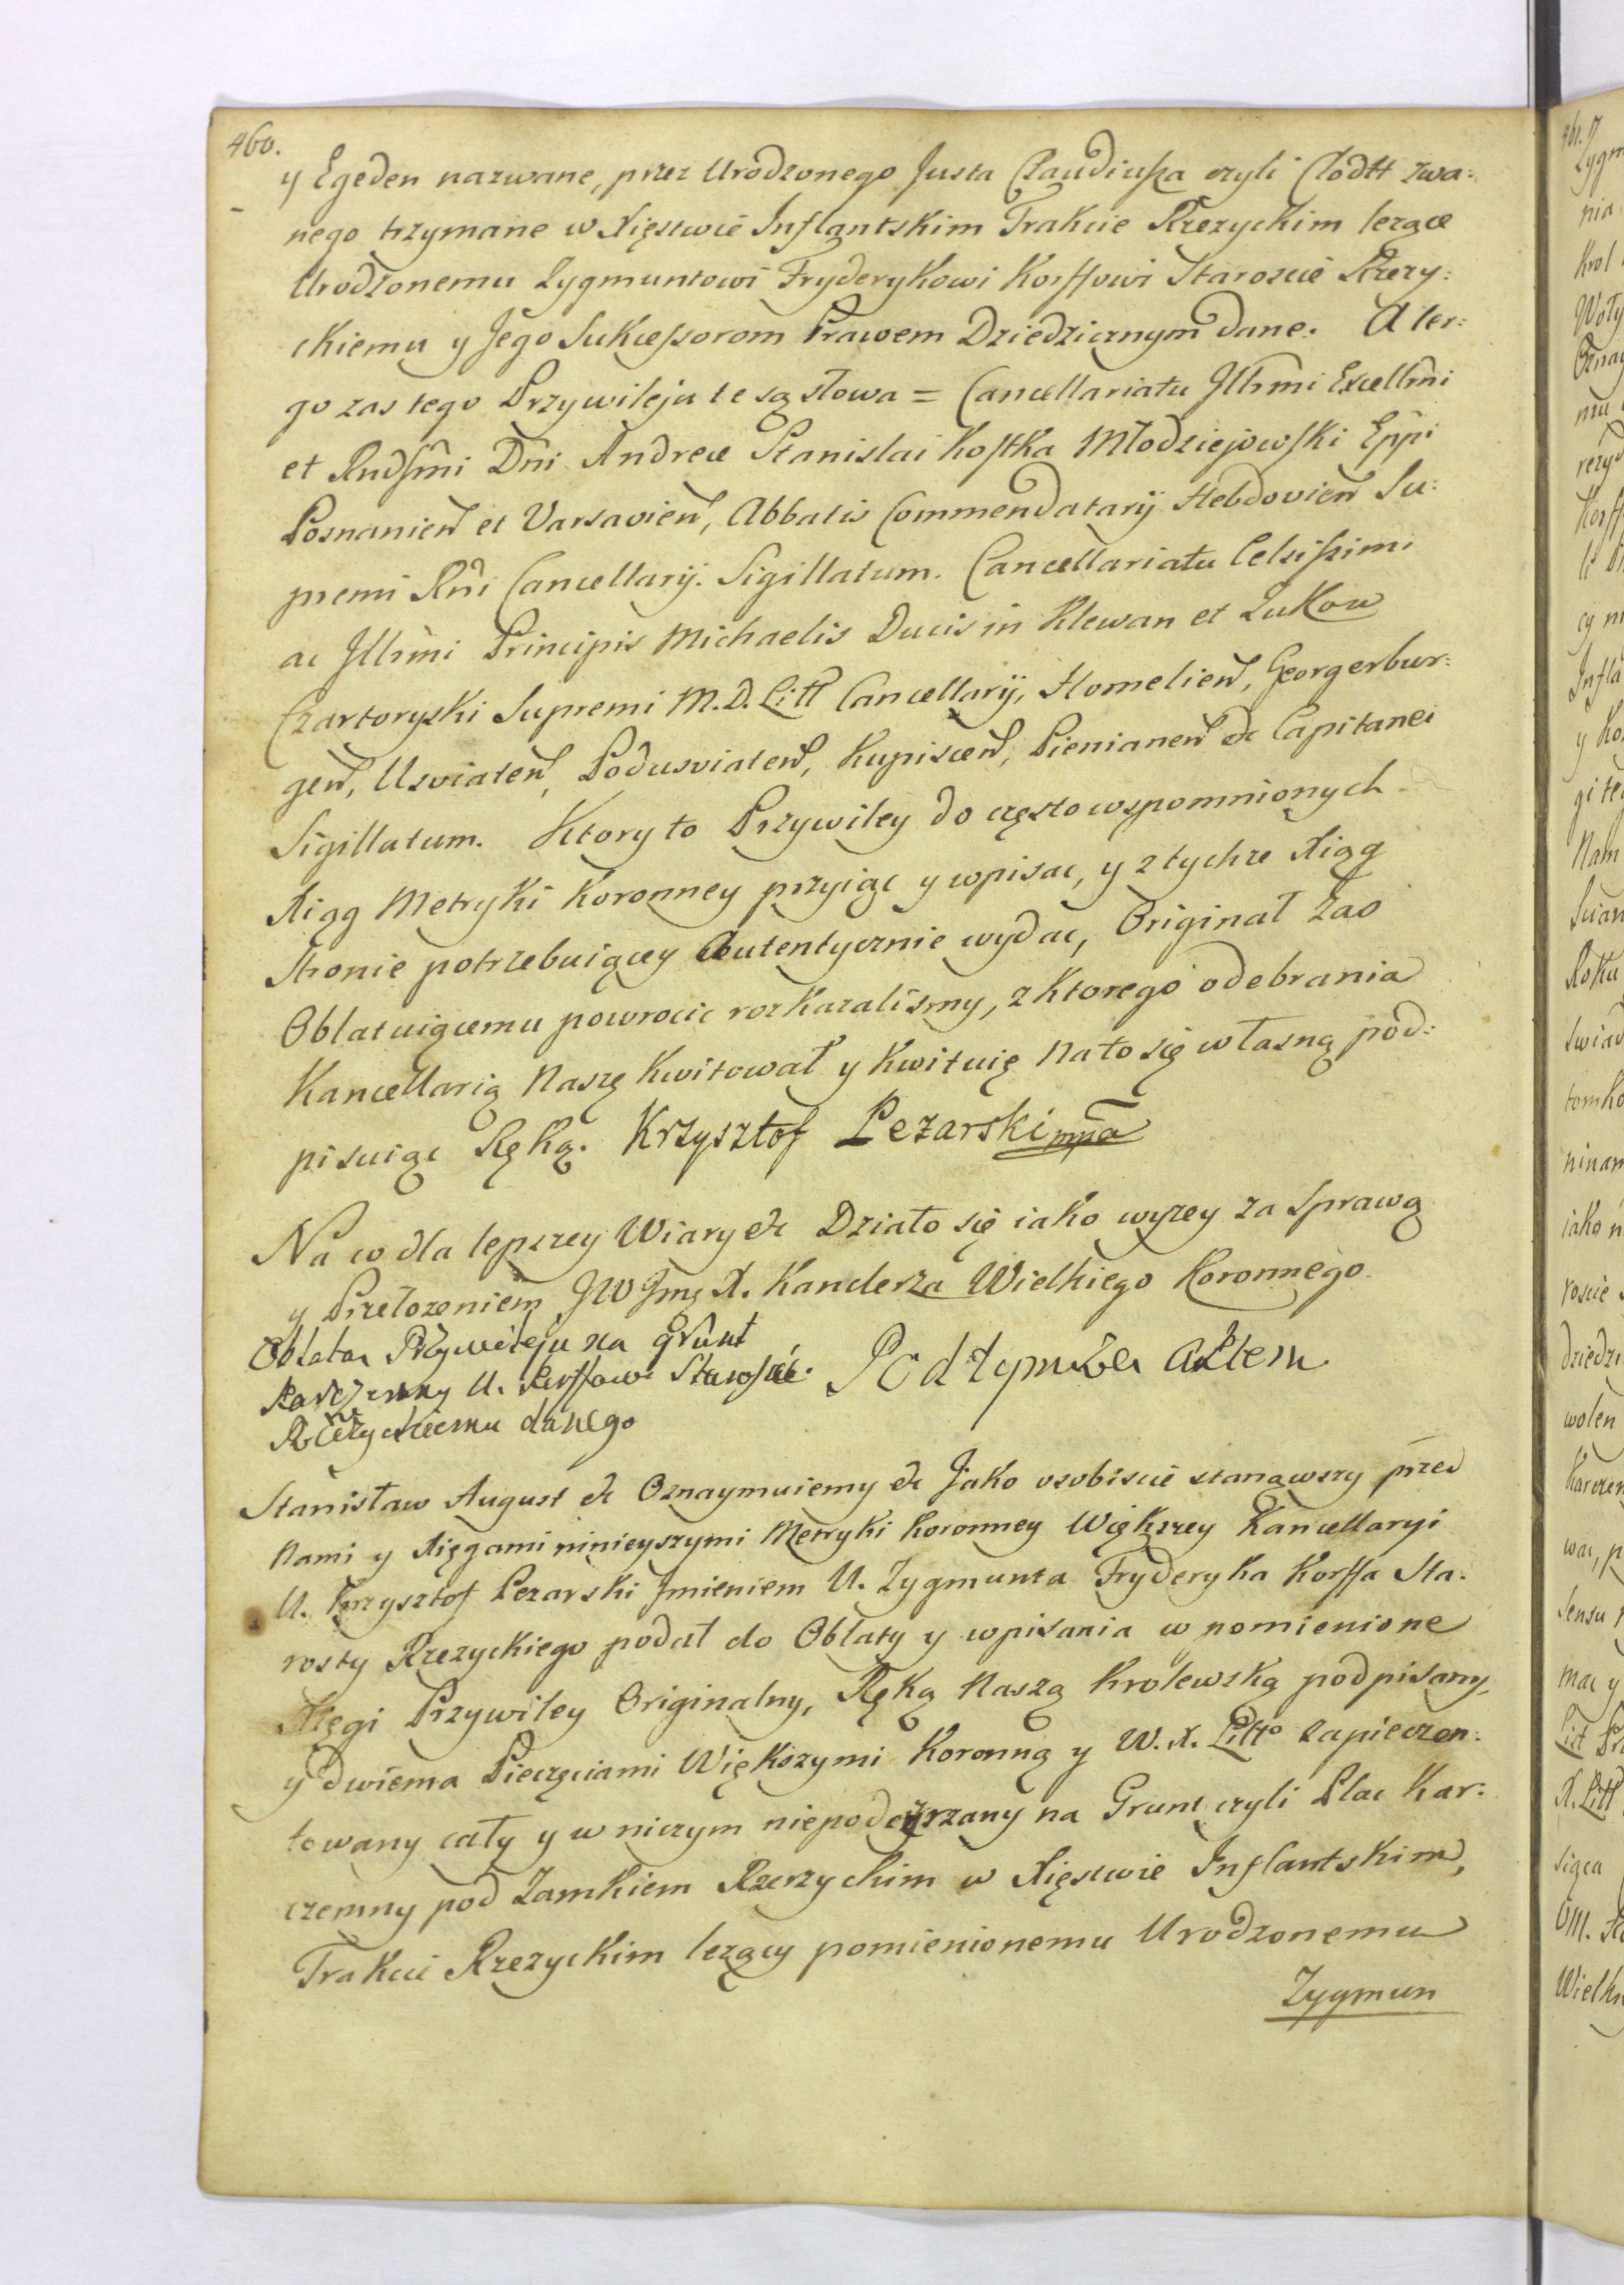 460.
y Egeden nazwane, przez Urodzonego Justa Claudiusza czyli Clodtt zwa:
nego trzymane w Xięstwie Inflantskim Trakcie Rzezyckim lezące
Urodzonemu Zygmuntowi Fryderykowi Korffowi Staroscie Rzezy:
ckiemu y Jego Sukcessorom Prawem Dziedzicznym dane. A ter:
go zas tego Przywileju te są słowa = Cancellariatu Illrmi Excellrmi
et Rndsmi Dni Andreæ Stanislai Kostka Młodziejowski Eppi
Posnanien et Varsavien, Abbatis Commendatarij Hebdovien Su:
premi Rni Cancellarij. Sigillatum. Cancellariatu Celsissimi
ac Illrmi Principis Michaelis Ducis in Klewan et Zukow
Czartoryski Supremi M. D. Litt Cancellarij, Homelien, Georgerbur:
gen, Usviaten, Podusviaten, Kupiscen, Pienianen &c Capitanei
Sigillatum. Ktory to Przywiley do często wspomnionych
Xiąg Metryki Koronney przyiąc y wpisac, y z tychze Xiąg
Stronie potrzebuiącey autentycznie wydac, Originał zas
Oblatuiącemu powrocic rozkazalismy, z ktorego odebrania
Kancellarią Naszę kwitował y kwituię na to się własną pod:
pisuiąc Ręką. Krzysztof Pezarski mpa
Na co dla lepszey Wiary &c Działo się iako wyzey za Sprawą
y Przełozeniem JW Jmę X. Kanclerza Wielkiego Koronnego.
Oblata Przywileju na Grunt
Karczemny U. Korffowi Staroście
Rzezyckiemu danego
Pod tymże Aktem
Stanisław August &c Oznaymuiemy &c Jako osobiscie stanąwszy przed
Nami y Xięgami ninieyszymi Metryki Koronney Większey Kancellaryi
U. Krzysztof Pezarski Imieniem U. Zygmunta Fryderyka Korffa Sta:
rosty Rzezyckiego podał do Oblaty y wpisania w pomienione
Xięgi Przywiley Originalny, Ręką Naszą Krolewską podpisany,
y dwiema Pieczęciami Większymi Koronną y W. X. Litto zapieczen:
towany cały y w niczym niepodeyrzany na Grunt czyli Plac Kar:
czemny pod Zamkiem Rzezyckim w Xięstwie Inflantskim,
Trakcie Rzezyckim lezący pomienionemu Urodzonemu
Zygmun